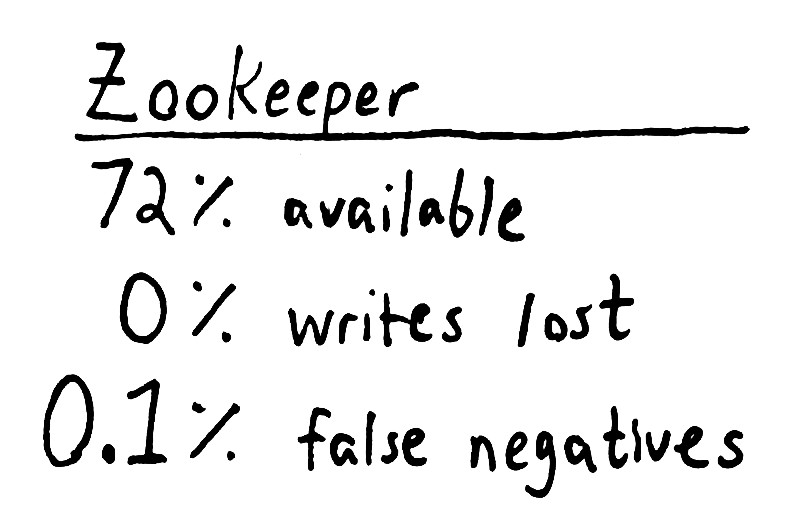 Zookeeper
72% available
0% writes lost
0.1% false negatives